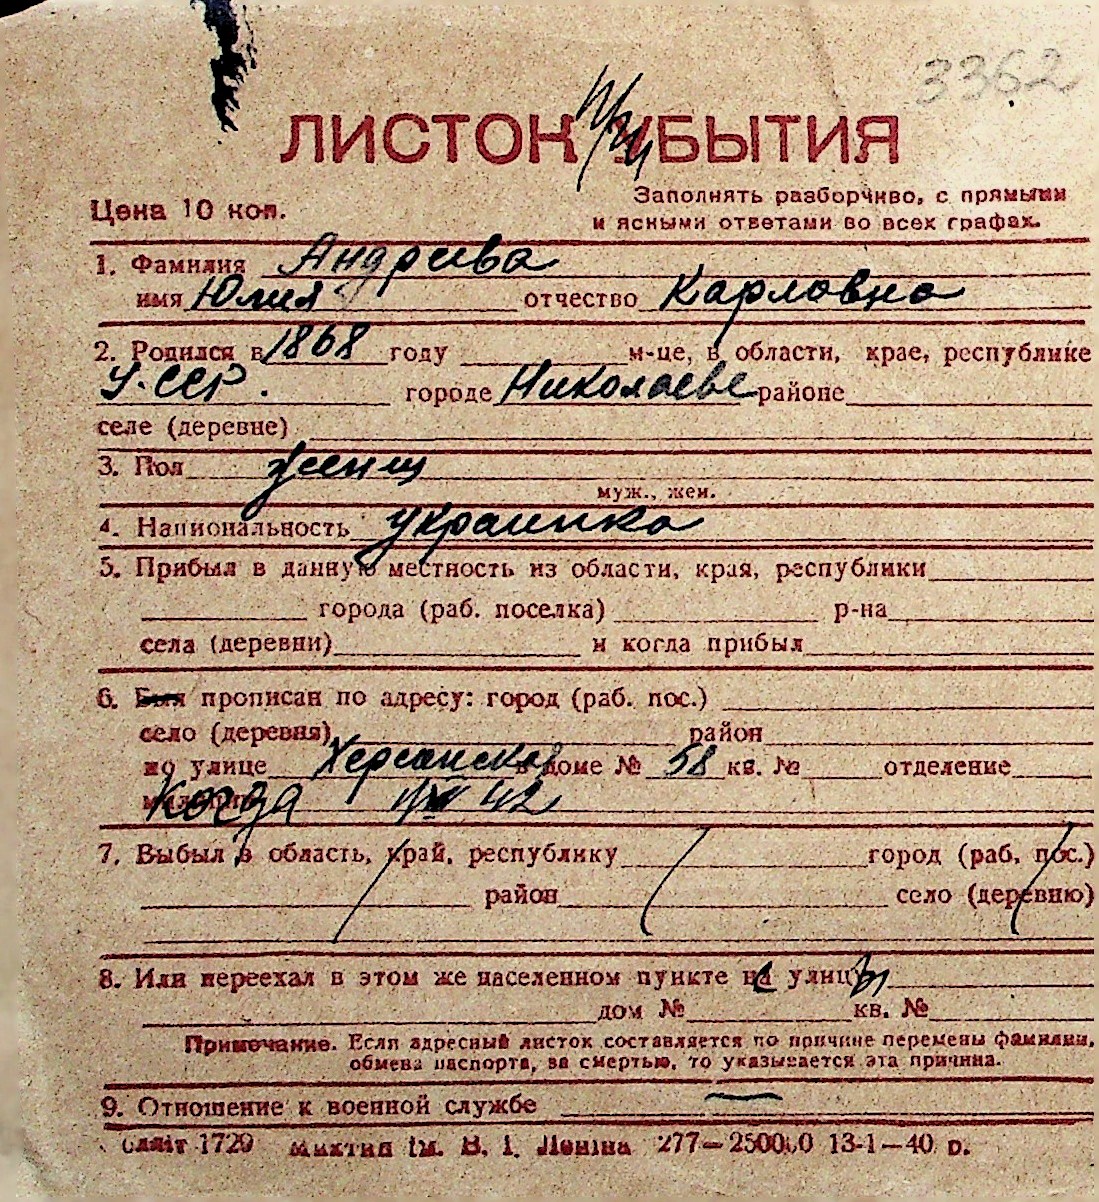 3362
ЛИСТОК ПРИБЫТИЯ
Цена 10 коп.
Заполнять разборчиво, с прямыми
и ясными ответами во всех графах.
1. Фамилия Андреева
имя Юлия отчество Карловна
2. Родился в 1868 году м-це, в области, крае, республике
У.ССР. городе Николаеве районе
селе (деревне)
3. Пол женщ
муж., жен.
4. Национальность украинка
5. Прибыл в данную местность из области, края, республики
города (раб. поселка) р-на
села (деревни) и когда прибыл
6. Был прописан по адресу: город (раб. пос.)
село (деревня) район
по улице Херсонской в доме № 58 кв. № отделение
когда 42
7. Выбыл в область, край, республику город (раб. пос.)
район село (деревню)
8. Или переехал в этом же населенном пункте с улицы
дом № кв. №
Примечание. Если адресный листок составляется по причине перемены фамилии,
обмена паспорта, за смертью, то указывается эта причина.
9. Отношение к военной службе —
1729 ім. В. І. Леніна 277—250000 13-1—40 р.